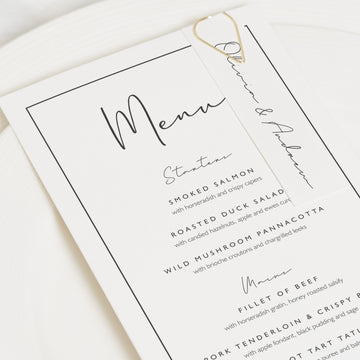 Menu
Olivia & Andrew
Starters
SMOKED SALMON
with horseradish and crispy capers
ROASTED DUCK SALAD
with candied hazelnuts, apple and ewes
WILD MUSHROOM PANNACOTTA
with brioche croutons and chargrilled leeks
Mains
FILLET OF BEEF
with horseradish gratin, honey roasted salsify
PORK TENDERLOIN & CRISPY
with apple fondant, black pudding and sage
TART TATI